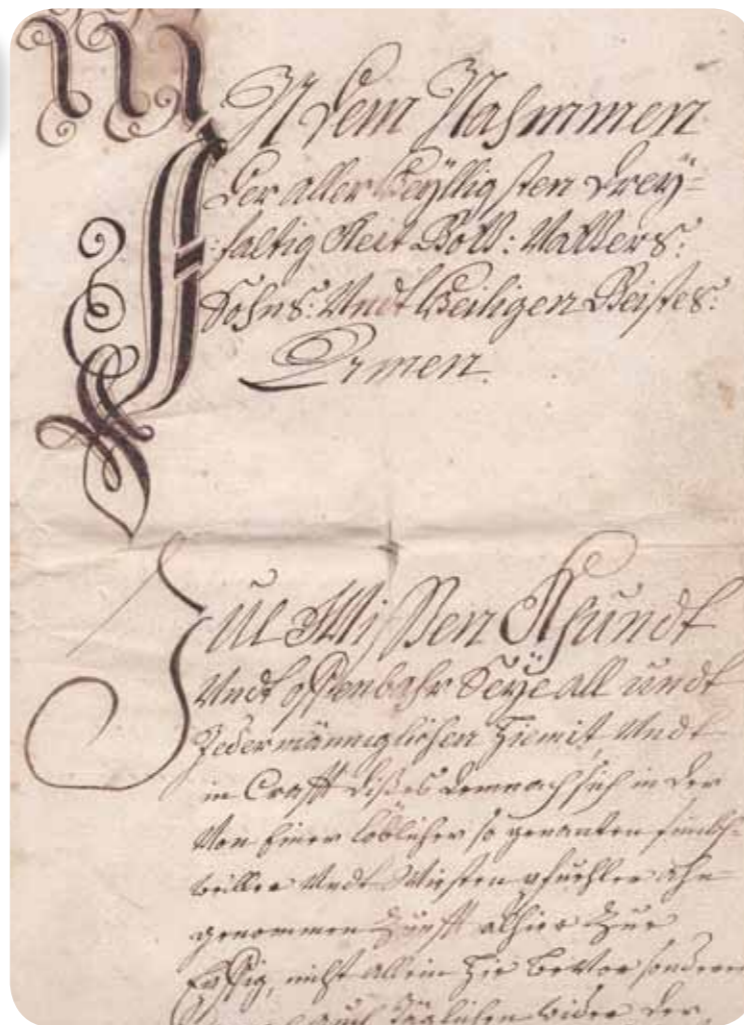 IN dem Nahmmen
der aller Heÿlligsten Dreÿ=
:faltigkeit Gott: Vatters:
Sohns: Undt Heiligen Geistes:
Amen.
Zue Wissen Khundt
Undt offenbahr Seÿe all undt
Jedermänniglichen Hiemit, Undt
in Crafft dißes demnach sich in der
Von Einer löblicher so genanten
Undt
genommen Zunfft alhier Zue
nicht allein hie bevor sonderen
auch Täglichen wider der